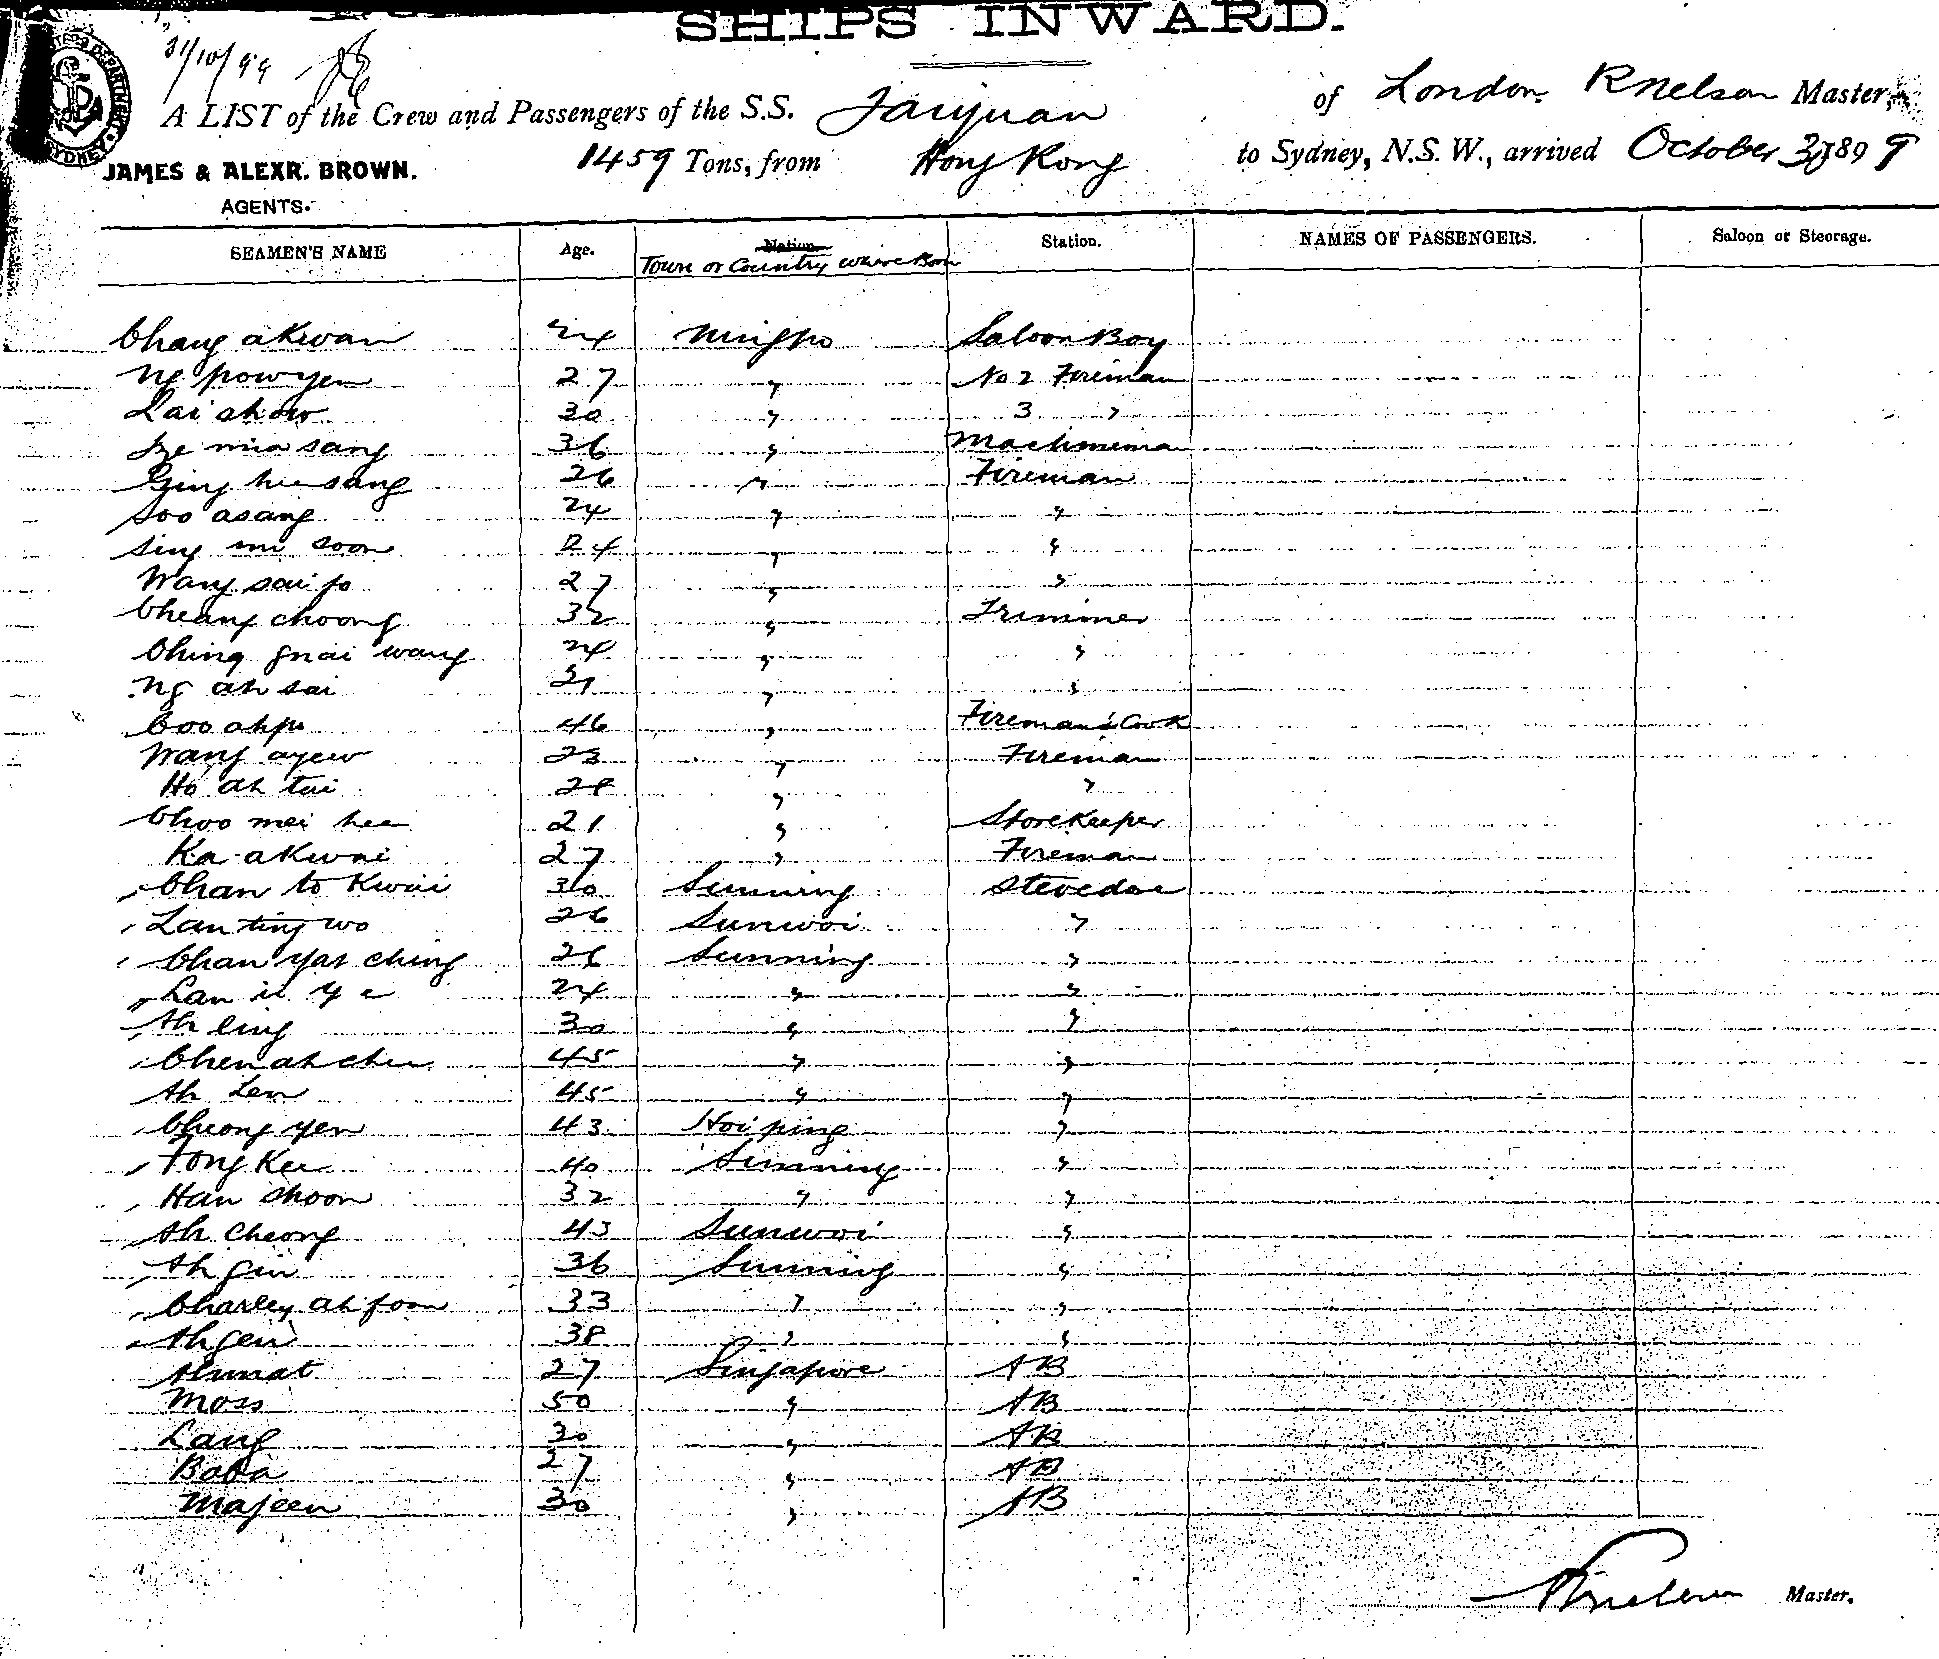 SHIPS INWARD.
31/10/99
A LIST of the Crew and Passengers of the S.S. Taiyuan of London R Nelson Master,
JAMES & ALEXR. BROWN. 1459 Tons, from Hong Kong to Sydney, N.S.W., arrived October 1899
AGENTS.
SEAMEN'S NAME Age. Nation Station. NAMES OF PASSENGERS. Saloon or Steerage.
Town or Country where Born
Chang akwan 24 Ningpo Saloon Boy
Ng powyen 27 " No 2 Fireman
Lai show 30 " 3 "
Sze mia sang 36 "
Ging hee sang 26 " Fireman
Soo asang 24 " "
Sing mi soon 24 " "
Wang sai fo 27 " "
Cheang choong 32 " Trimmer
Ching gnai wang 24 " "
Ng ah sai 21 " "
Coo ahpo 46 " Fireman's Cook
Wang ayew 23 " Fireman
Ho ah tai 28 " "
Choo mei hee 21 " Storekeeper
Ka akwai 27 " Fireman
Chan to Kwai 30 Sunning Stevedore
Lan ting wo 26 Sunwoi "
Chan yat ching 26 Sunning "
Lan 24 " "
Ah ling 30 " "
Chen ah chee 45 " "
Ah Len 45 " "
Cheong yen 43 Hoi ping "
Fong Kee 40 Sunning "
Han choon 32 " "
Ah Cheong 43 Sunwoi "
Ah gin 36 Sunning "
Charley ah foon 33 " "
Ah gen 38 " "
Ahmat 27 Singapore AB
Moss 50 " AB
Lang 30 " AB
Baba 27 " AB
Majeen 30 " AB
R Nelson Master.